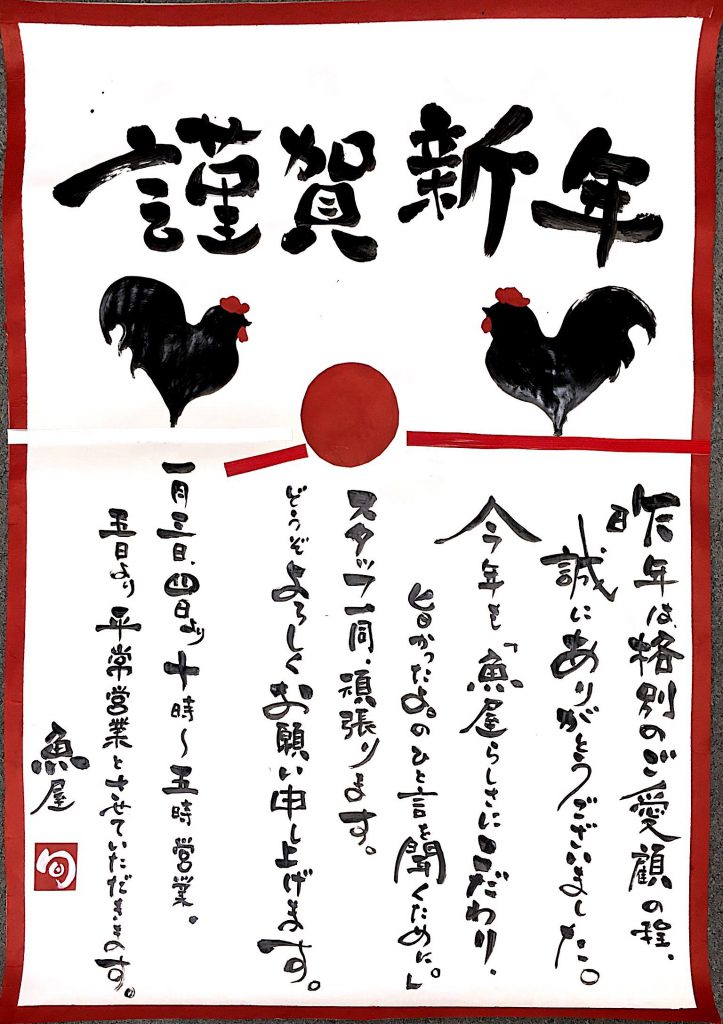 謹賀新年
昨年は、格別のご愛顧の程、
誠にありがとうございました。
今年も「魚屋らしさにこだわり、
旨かったよ。のひと言を聞くために。」
スタッフ一同、頑張ります。
どうぞよろしくお願い申し上げます。
一月三日、四日より十時～五時営業。
五日より平常営業とさせていただきます。
魚屋
旬